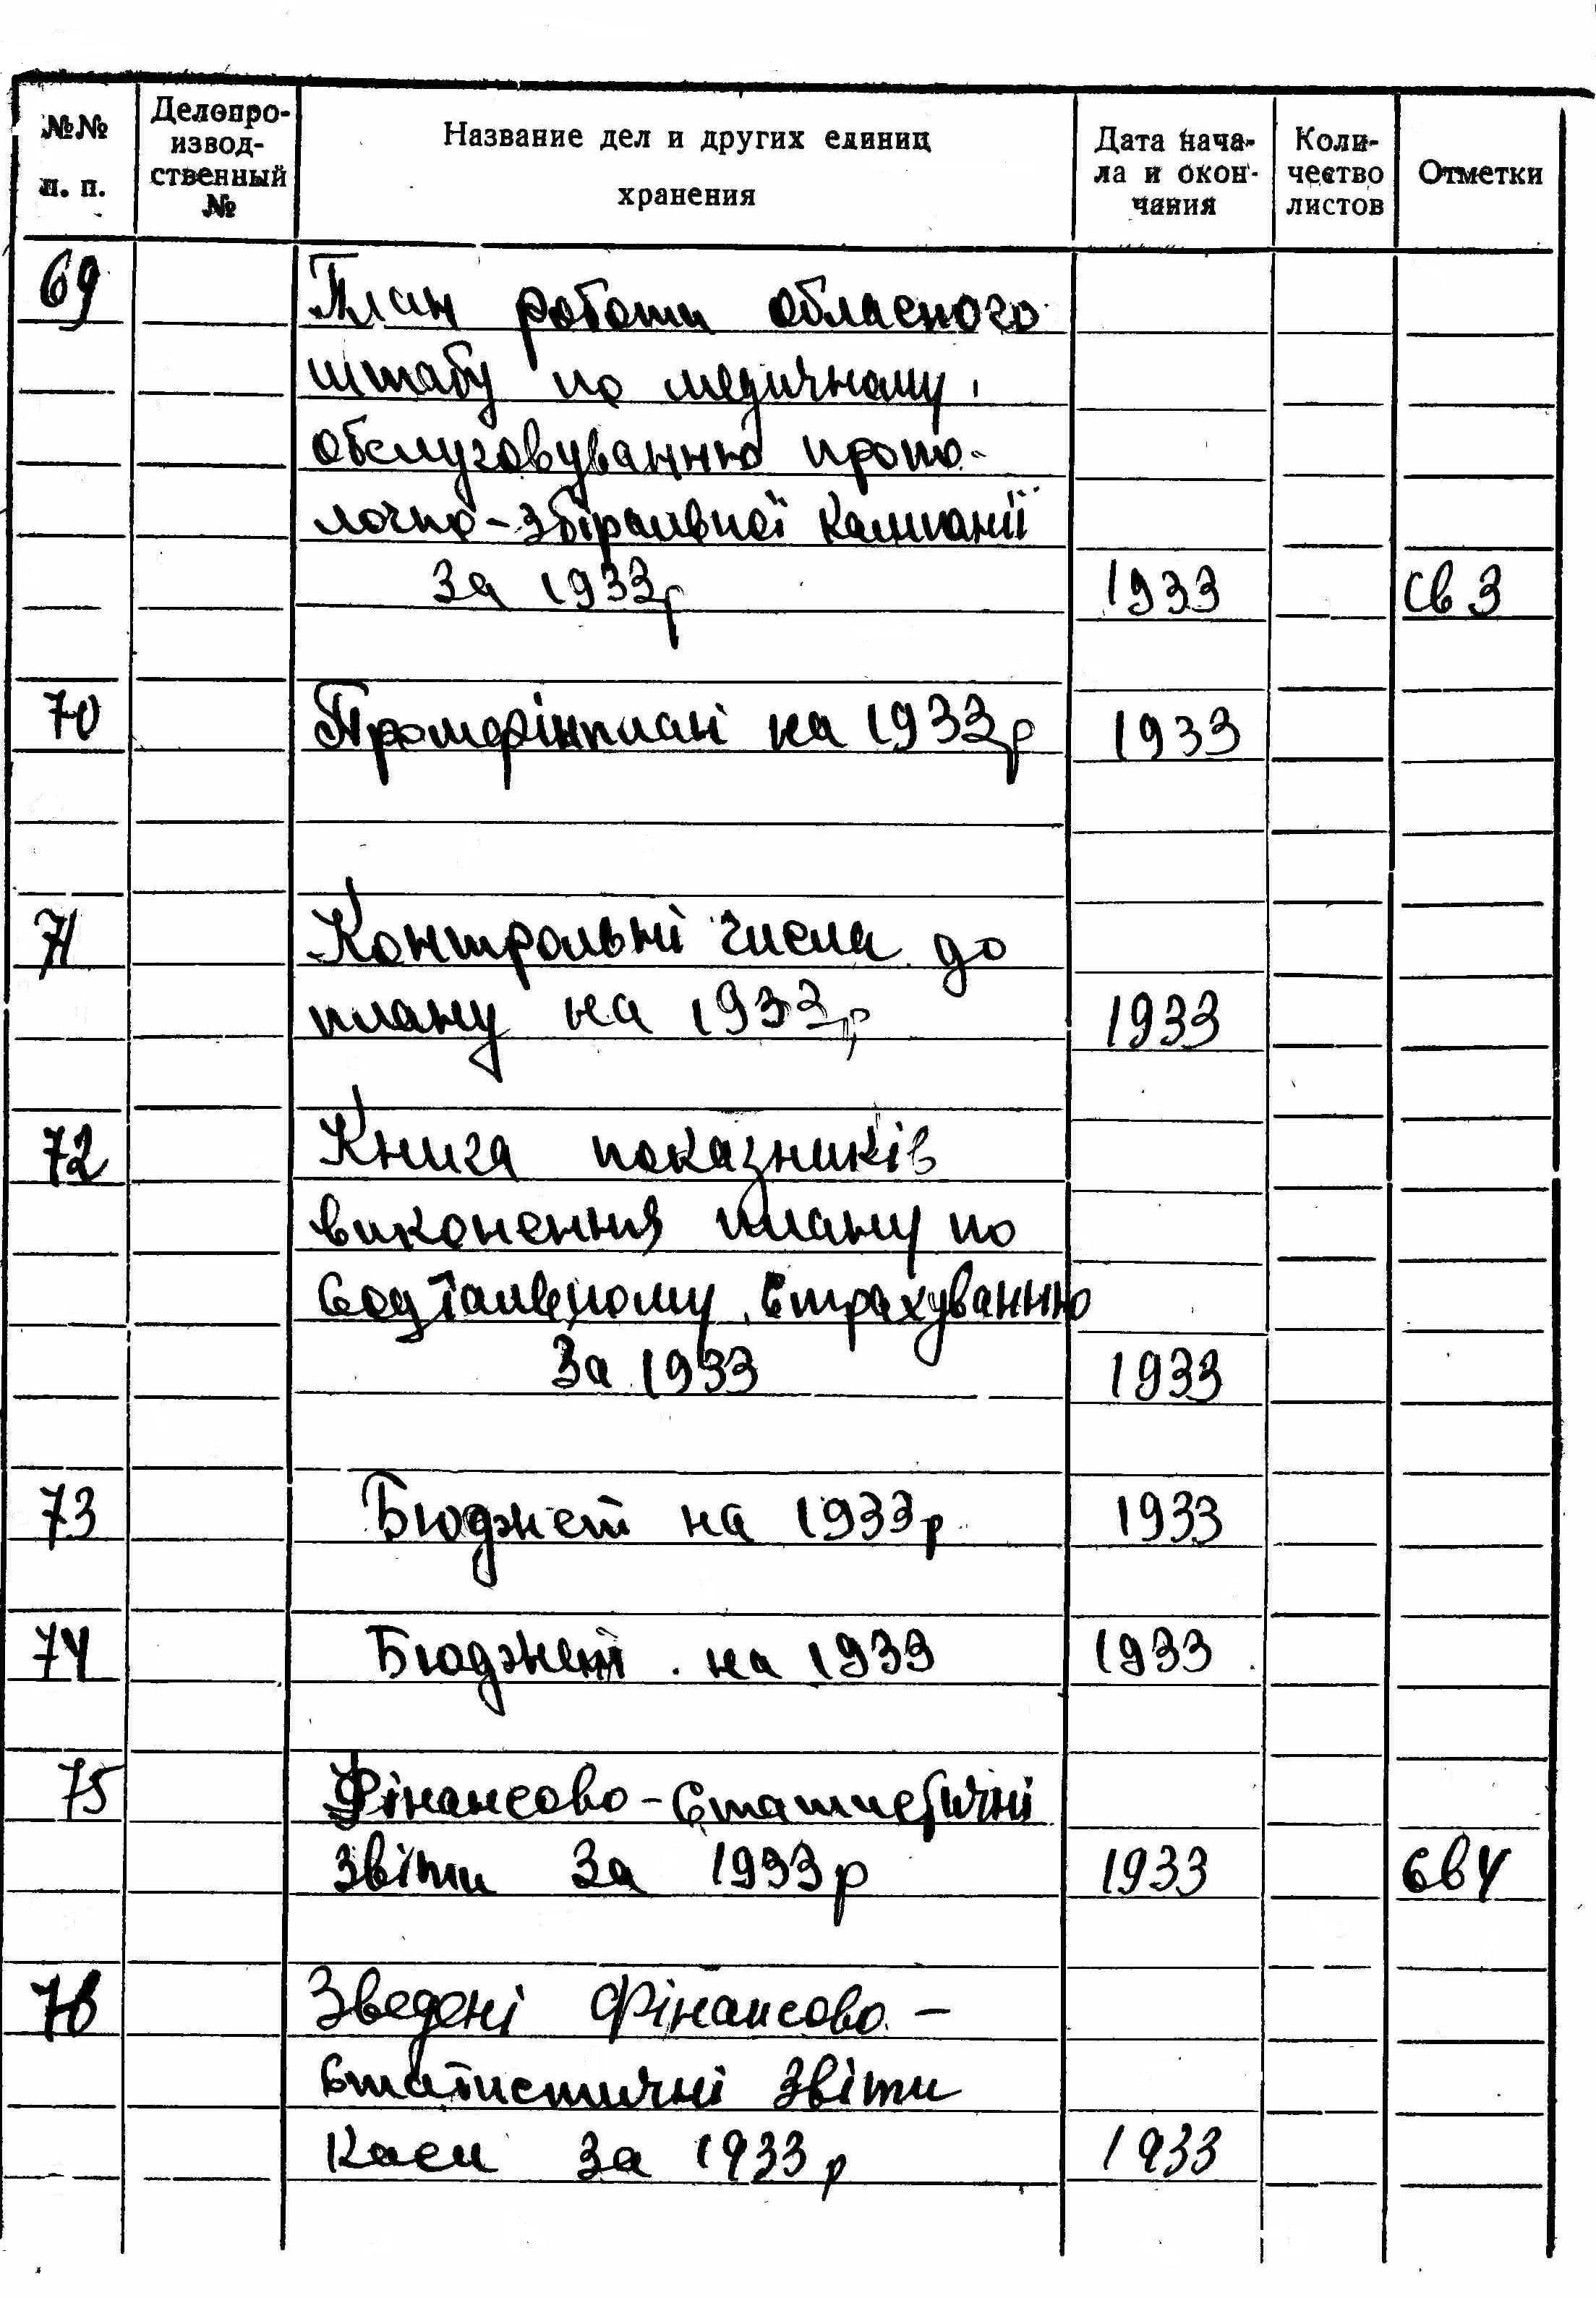 №№ п. п.
Делопро-
извод-
ственный
№
Название дел и других единиц
хранения
Дата нача-
ла и окон-
чания
Коли-
чество
листов
Отметки
69 План роботи обласного
штабу по медичному
обслуговуванню пропо-
лочно-збіральної кампанії
за 1933р 1933 св 3
70 Промфінплані на 1933р 1933
71 Контрольні числа до
плану на 1933р 1933
72 Книга показників
виконення плану по
соціальному страхуванню
за 1933 1933
73 Бюджет на 1933р 1933
74 Бюджет на 1933 1933
75 Фінансово-статистичні
звіти за 1933р 1933 св 4
76 Зведені фінансово-
статистичні звіти
каси за 1933р 1933